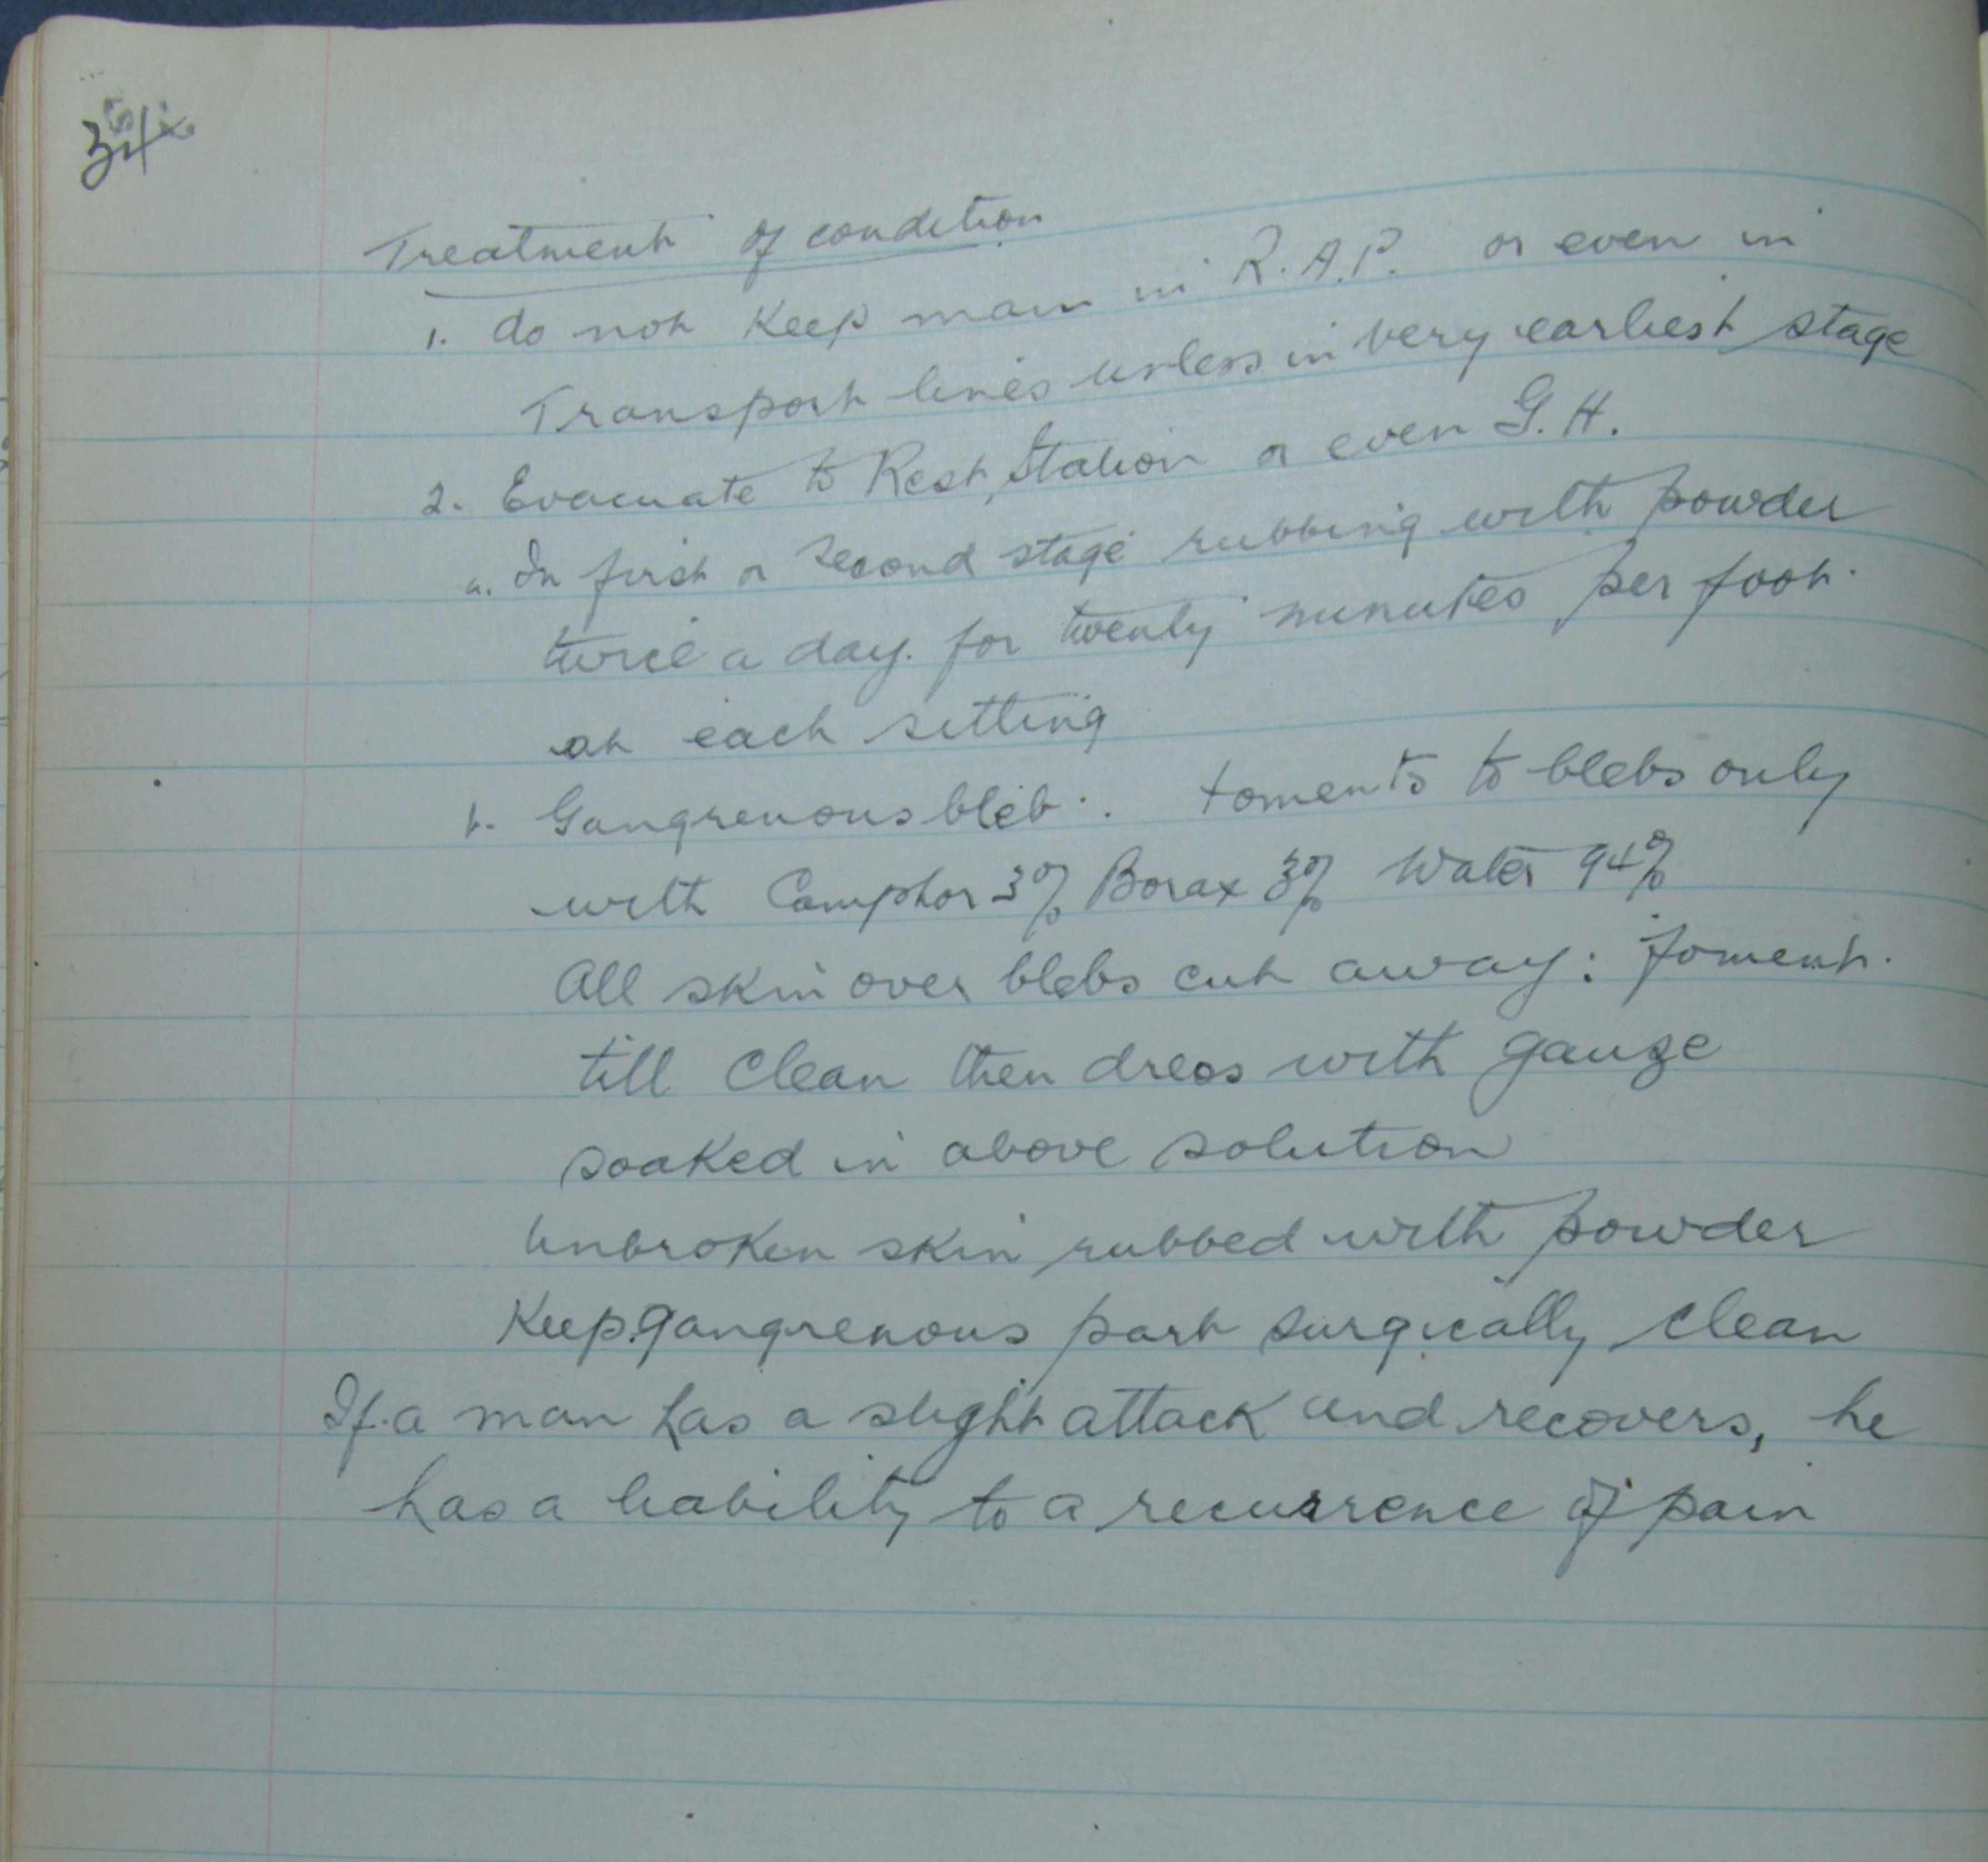 Treatment of condition
1. do not Keep man in R.A.P. or even in
Transport lines unless in very earliest stage
2. Evacuate to Rest Station or even G.H.
a. In first or second stage rubbing with powder
twice a day. for twenty minutes per foot.
at each sitting
b. Gangrenous bleb. foments to blebs only
with Camphor 3% Borax 3% Water 94%
All skin over blebs cut away: foment.
till clean then dress with gauze
soaked in above solution
Unbroken skin rubbed with powder
Keep gangrenous part surgically clean
If a man has a slight attack and recovers, he
has a liability to a recurrence of pain